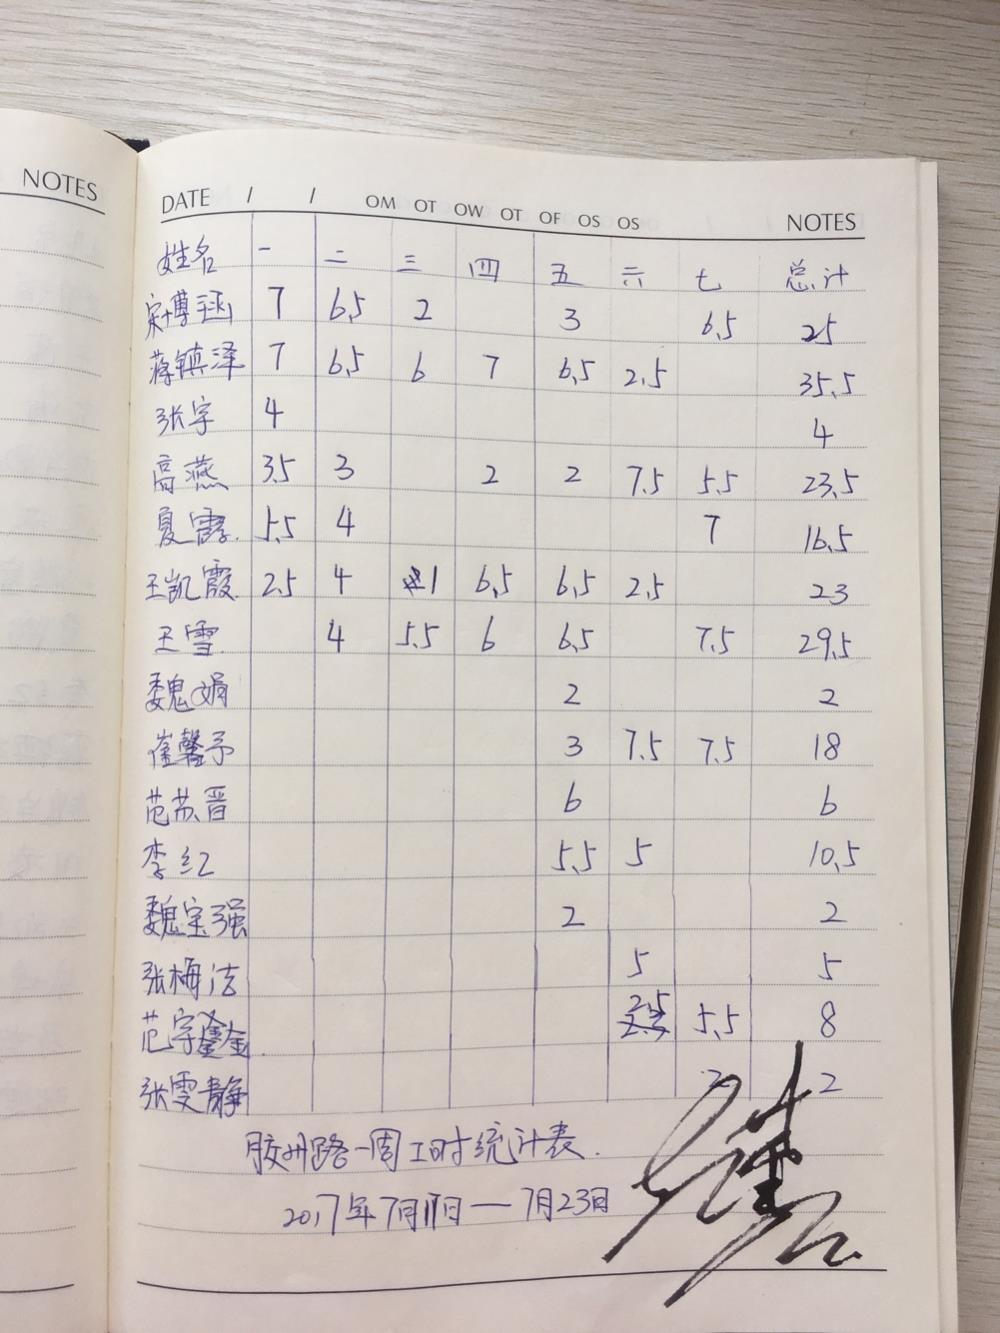 NOTES
DATE / / OM OT OW OT OF OS OS NOTES
姓名 一 二 三 四 五 六 七 总计
宋博涵 7 6.5 2 3 6.5 25
蒋镇泽 7 6.5 6 7 6.5 2.5 35.5
张宇 4 4
高燕 3.5 3 2 2 7.5 5.5 23.5
夏霈 5.5 4 7 16.5
王凯霞 2.5 4 1 6.5 6.5 2.5 23
王雪 4 5.5 6 6.5 7.5 29.5
魏娟 2 2
崔馨予 3 7.5 7.5 18
范苏晋 6 6
李红 5.5 5 10.5
魏宝强 2 2
张梅洁 5 5
范宇鑫 2.5 5.5 8
张雯静 2 2
胶州路一周工时统计表.
2017年7月17日——7月23日